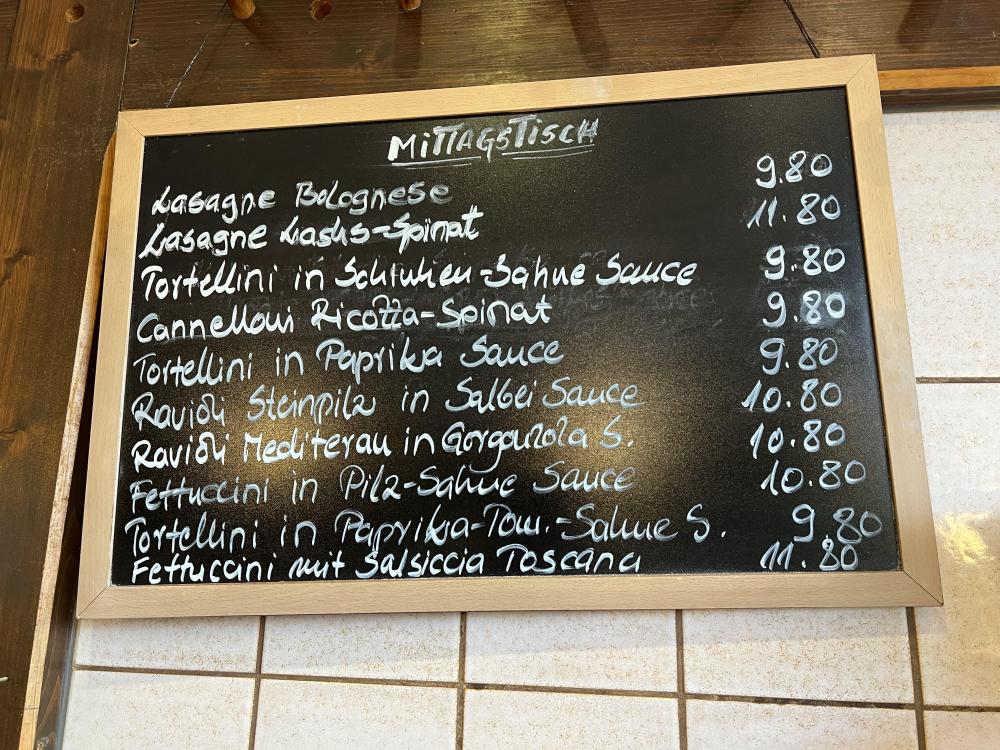 MITTAGSTISCH
Lasagne Bolognese 9.80
Lasagne Lachs-Spinat 11.80
Tortellini in Schinken-Sahne Sauce 9.80
Cannelloni Ricotta-Spinat 9.80
Tortellini in Paprika Sauce 9.80
Ravioli Steinpilz in Salbei Sauce 10.80
Ravioli Mediteran in Gorgonzola S. 10.80
Fettuccini in Pilz-Sahne Sauce 10.80
Tortellini in Paprika-Tom.-Sahne S. 9.80
Fettuccini mit Salsiccia Toscana 11.80